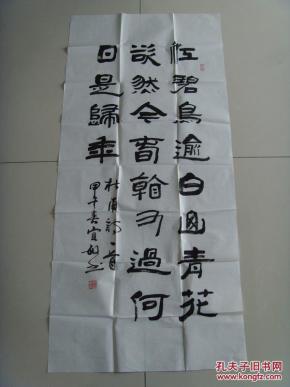 江碧鳥逾白山青花
欲然今春看又過何
日是歸年
杜甫詩一首
甲午春